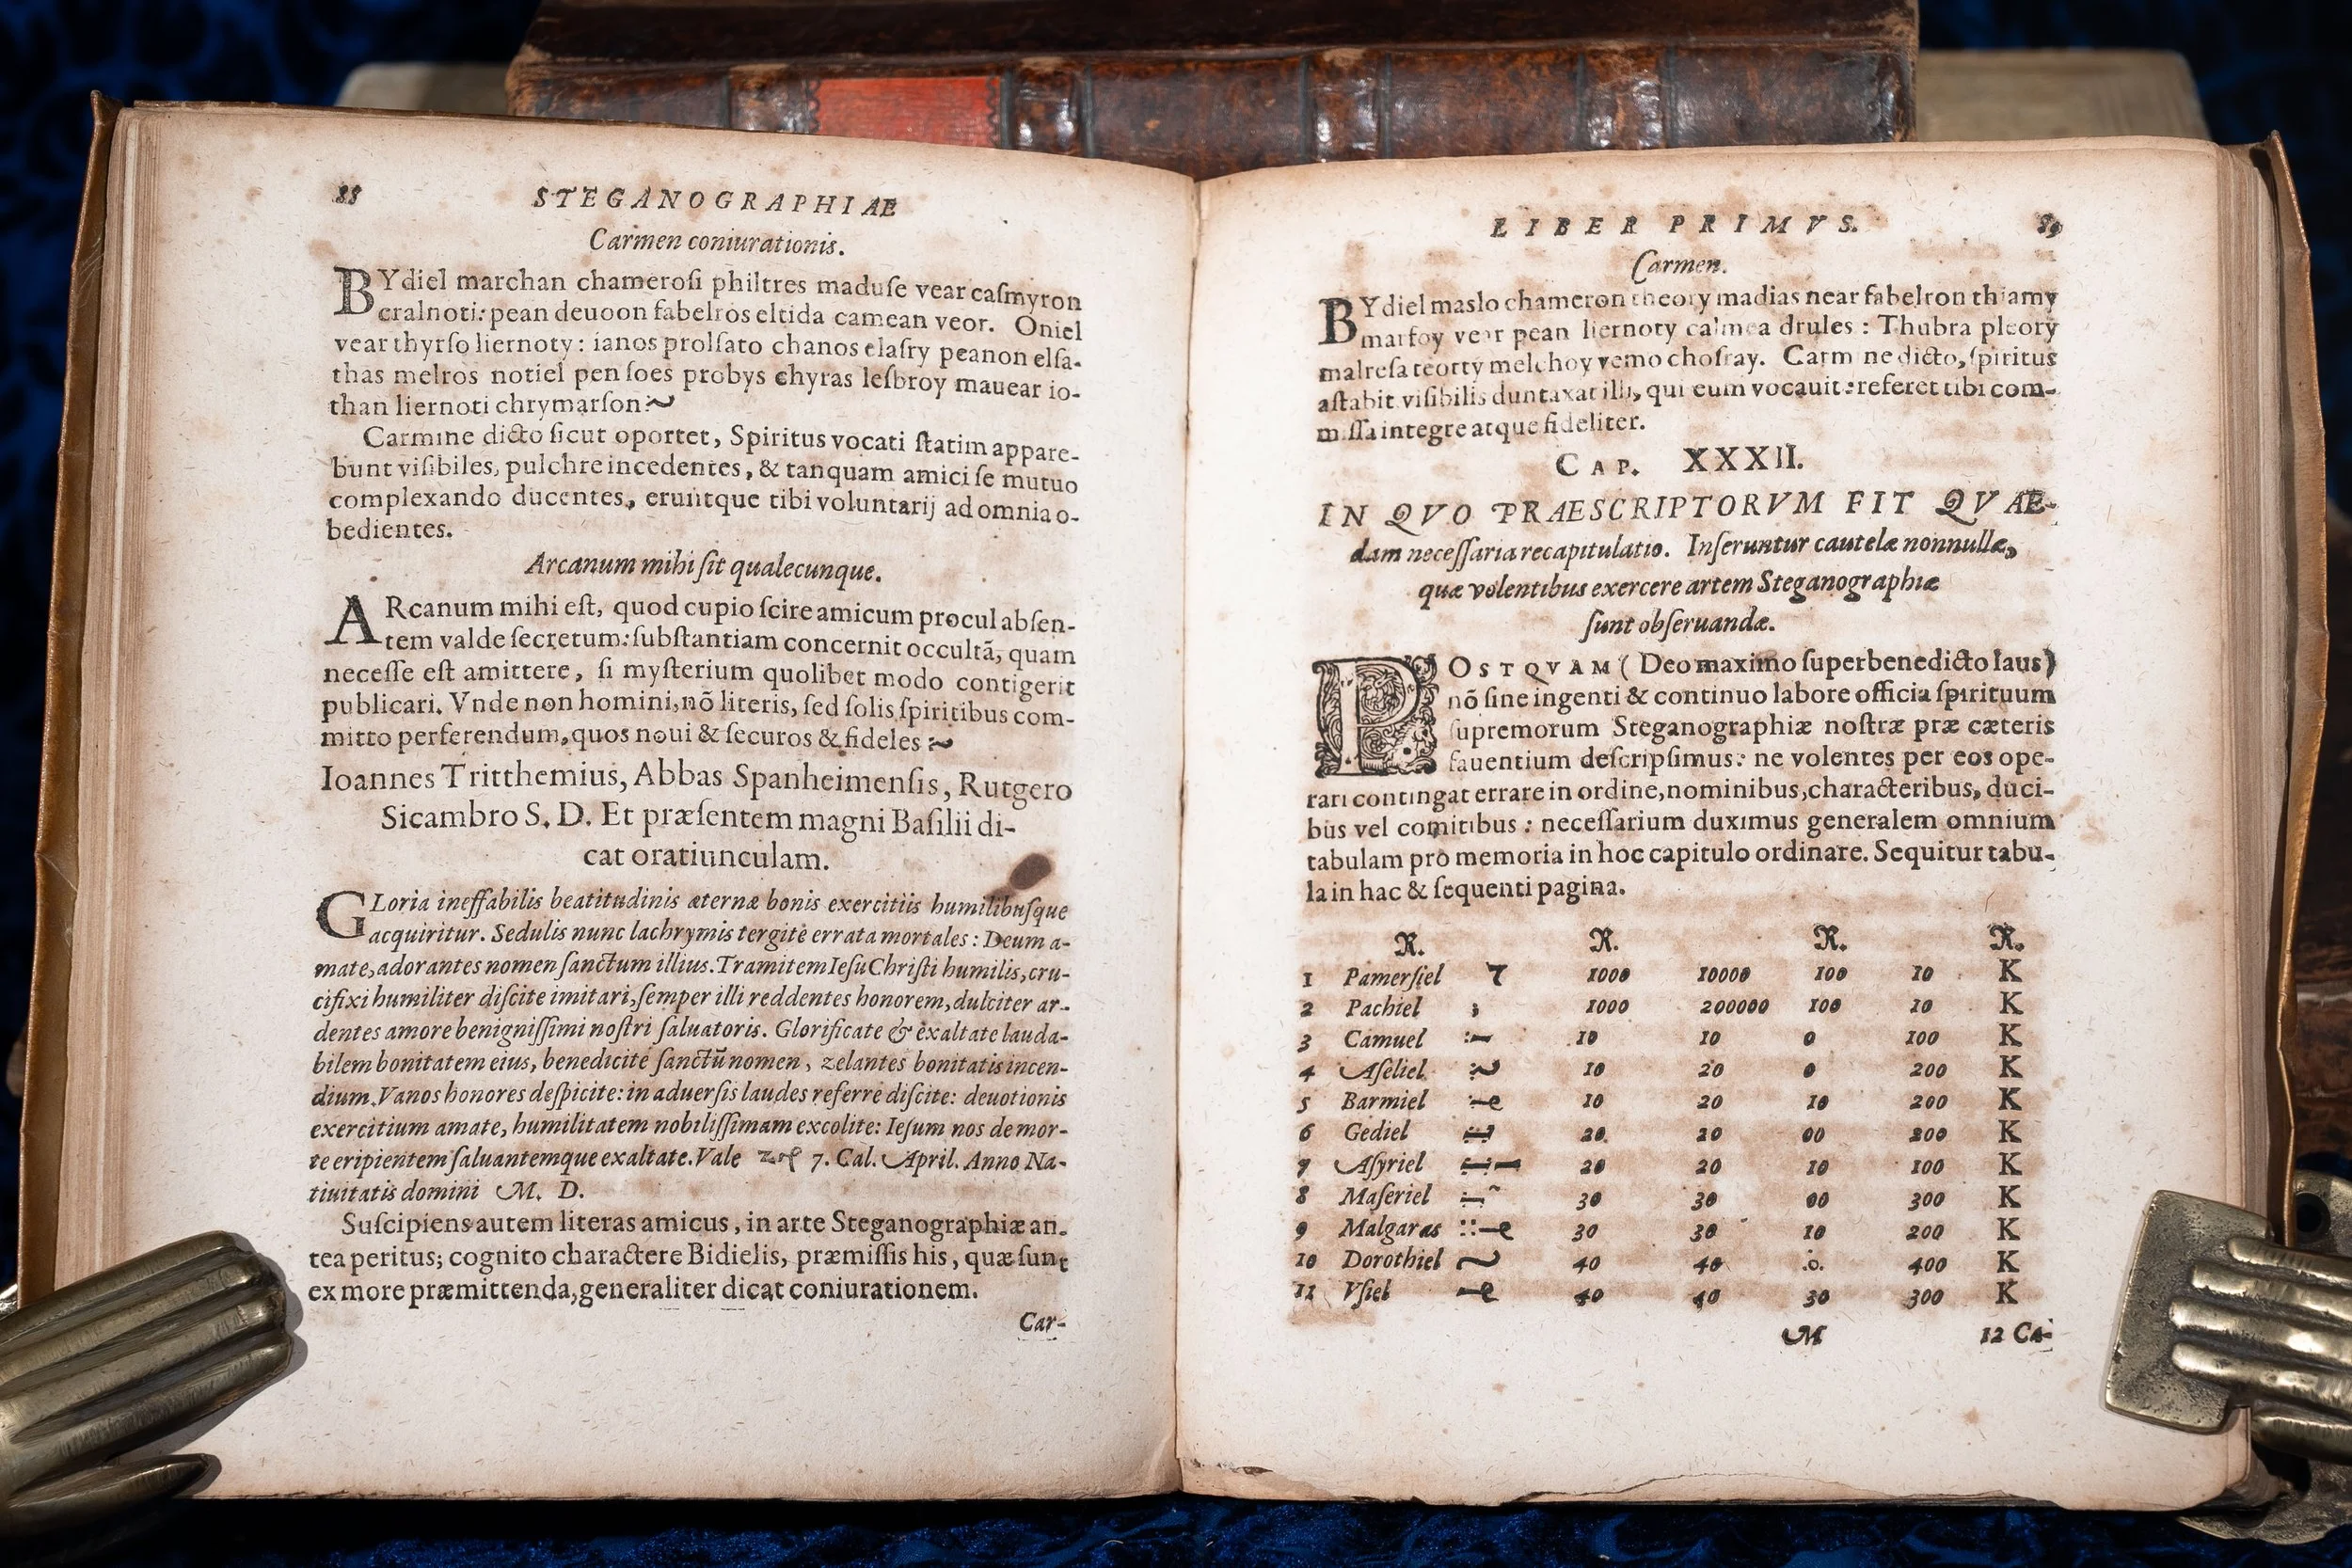 88 STEGANOGRAPHIAE
Carmen coniurationis.
BYdiel marchan chameroſi philtres maduſe vear caſmyron
cralnoti: pean deuoon fabelros eltida camean veor. Oniel
vear thyrſo liernoty: ianos prolſato chanos elaſry peanon elſa-
thas melros notiel pen ſoes probys chyras leſbroy mauear io-
than liernoti chrymarſon
Carmine dicto ſicut oportet, Spiritus vocati ſtatim appare-
bunt viſibiles, pulchre incedentes, & tanquam amici ſe mutuo
complexando ducentes, eruntque tibi voluntarij ad omnia o-
bedientes.
Arcanum mihi ſit qualecunque.
ARcanum mihi eſt, quod cupio ſcire amicum procul abſen-
tem valde ſecretum: ſubſtantiam concernit occultã, quam
neceſſe eſt amittere, ſi myſterium quolibet modo contigerit
publicari. Vnde non homini, nõ literis, ſed ſolis ſpiritibus com-
mitto perferendum, quos noui & ſecuros & fideles
Ioannes Tritthemius, Abbas Spanheimenſis, Rutgero
Sicambro S. D. Et præſentem magni Baſilii di-
cat oratiunculam.
GLoria ineffabilis beatitudinis æternæ bonis exercitiis humilibuſque
acquiritur. Sedulis nunc lachrymis tergite errata mortales: Deum a-
mate, adorantes nomen ſanctum illius. Tramitem Ieſu Chriſti humilis, cru-
cifixi humiliter diſcite imitari, ſemper illi reddentes honorem, dulciter ar-
dentes amore benigniſſimi noſtri ſaluatoris. Glorificate & exaltate lauda-
bilem bonitatem eius, benedicite ſanctũ nomen, zelantes bonitatis incen-
dium. Vanos honores deſpicite: in aduerſis laudes referre diſcite: deuotionis
exercitium amate, humilitatem nobiliſſimam excolite: Ieſum nos de mor-
te eripientem ſaluantemque exaltate. Vale 7. Cal. April. Anno Na-
tiuitatis domini M. D.
Suſcipiens autem literas amicus, in arte Steganographiæ an-
tea peritus; cognito charactere Bidielis, præmiſſis his, quæ ſunt
ex more præmittenda, generaliter dicat coniurationem.
Car-
LIBER PRIMVS. 89
Carmen.
BYdiel maslo chameron theory madias near fabelron thiamy
marfoy vear pean liernoty calmea drules: Thubra pleory
malreſa teorty melchoy vemo choſray. Carmine dicto, ſpiritus
aſtabit viſibilis duntaxat illi, qui eum vocauit: referet tibi com-
miſſa integre atque fideliter.
CAP. XXXII.
IN QVO PRAESCRIPTORVM FIT QVAE-
dam neceſſaria recapitulatio. Inſeruntur cautelæ nonnullæ,
quæ volentibus exercere artem Steganographiæ
ſunt obſeruandæ.
POSTQVAM (Deo maximo ſuperbenedicto laus)
nõ ſine ingenti & continuo labore officia ſpirituum
ſupremorum Steganographiæ noſtræ præ cæteris
fauentium deſcripſimus: ne volentes per eos ope-
rari contingat errare in ordine, nominibus, characteribus, duci-
bus vel comitibus: neceſſarium duximus generalem omnium
tabulam pro memoria in hoc capitulo ordinare. Sequitur tabu-
la in hac & ſequenti pagina.
R. R. R. R.
1 Pamerſiel 1000 10000 100 10 K
2 Pachiel 1000 200000 100 10 K
3 Camuel 10 10 0 100 K
4 Aſeliel 10 20 0 200 K
5 Barmiel 10 20 10 200 K
6 Gediel 20 20 00 200 K
7 Aſyriel 20 20 10 100 K
8 Maſeriel 30 30 00 300 K
9 Malgaras 30 30 10 200 K
10 Dorothiel 40 40 0. 400 K
11 Vſiel 40 40 30 300 K
M 12 Ca-